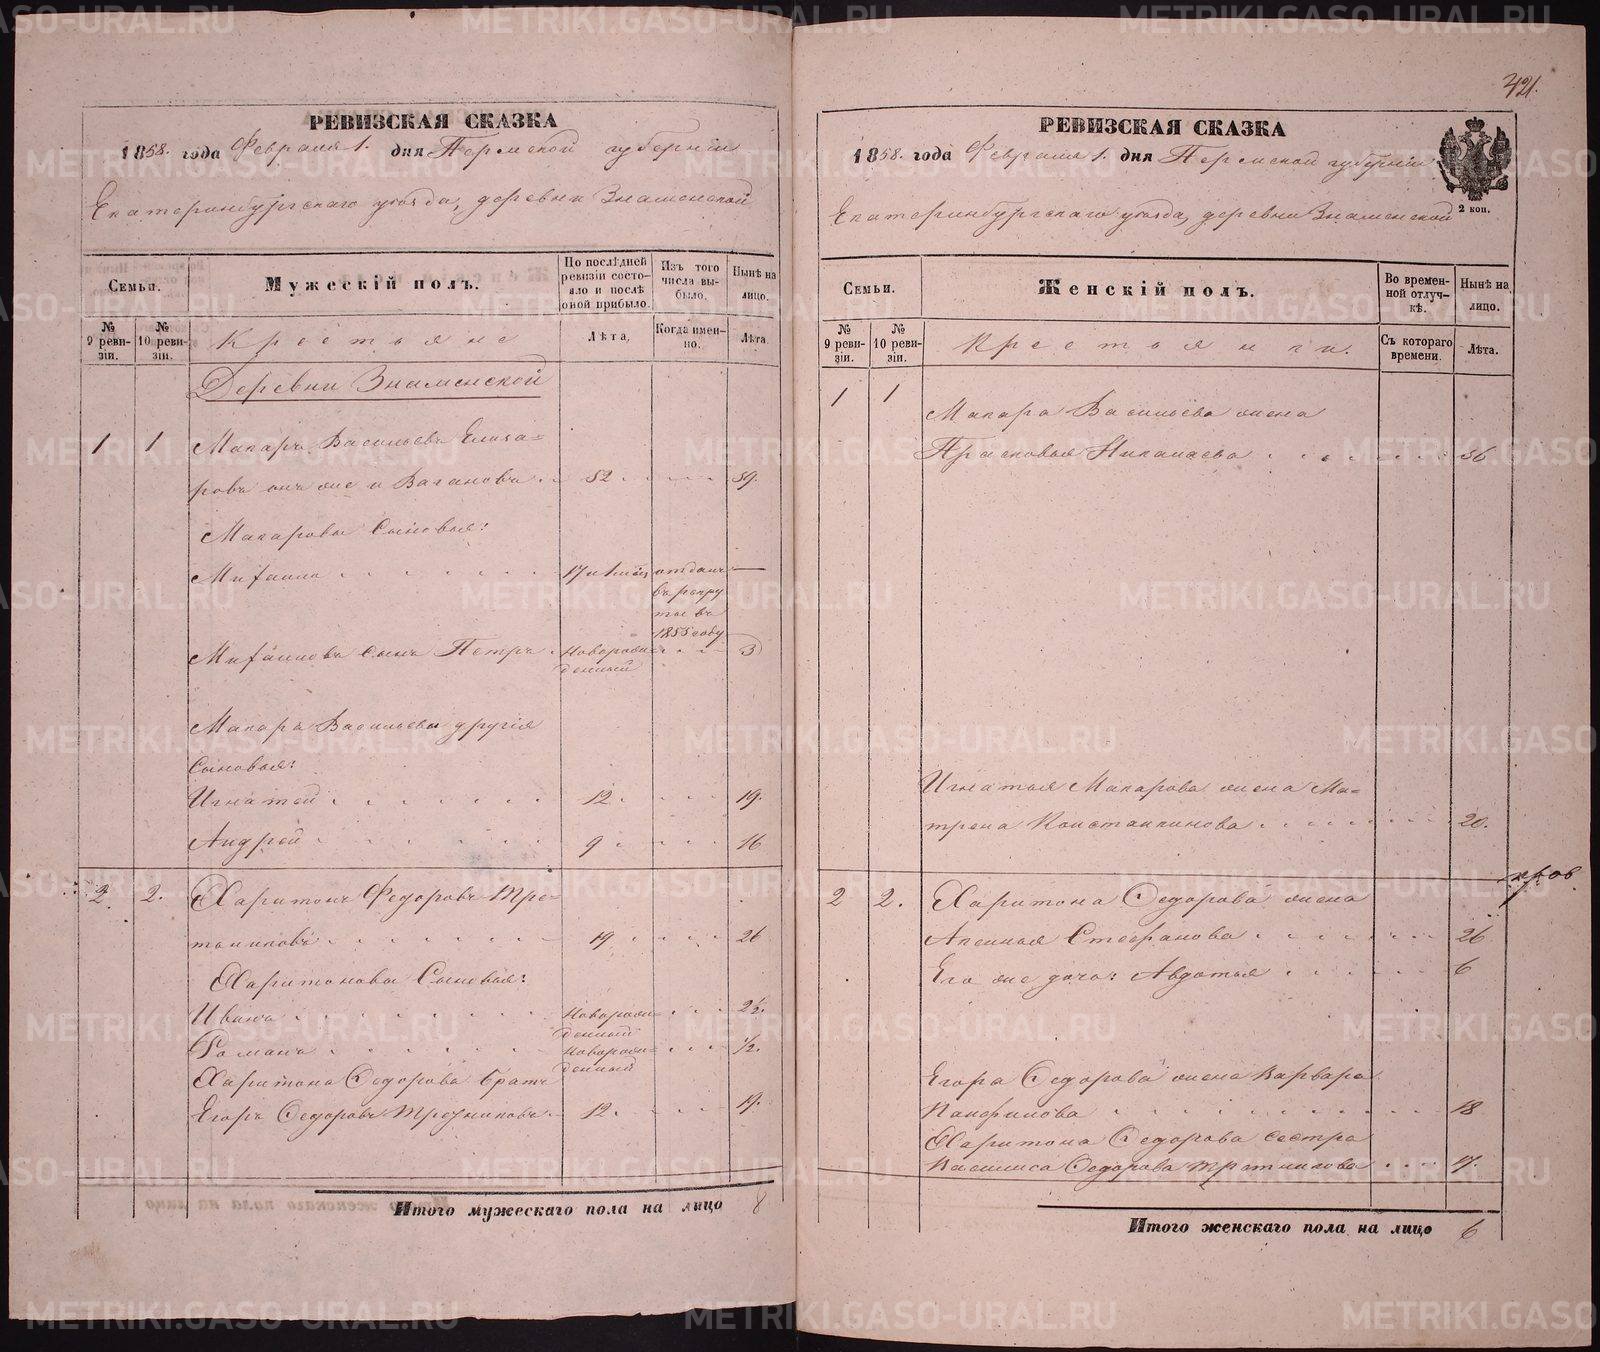 РЕВИЗСКАЯ СКАЗКА
1858. года Февраля 1. дня Пермской губернiи
Екатеринбургскаго уѣзда, деревни Знаменской
Семьи.
Мужескiй полъ.
По послѣдней ревизiи состояло и послѣ оной прибыло.
Изъ того числа выбыло.
Нынѣ на лицо.
№ 9 ревизiи.
№ 10 ревизiи.
Крестьяне
Лѣта.
Когда именно.
Лѣта.
Деревни Знаменской
1 1 Макаръ Васильевъ Елиза=
ровъ онъ же и Вагановъ 52 59.
Макаровы Сыновья:
Михаило 17 отданъ
въ рекру
ты въ
1855 году
Михаиловъ сынъ Петръ Новорож= 3
денный
Макара Васильева другiя
Сыновья:
Игнатей 12. 19.
Андрей 9 16
2. 2. Харитонъ Федоровъ Тре=
тниковъ 19 26
Харитоновы Сыновья:
Иванъ Новорож= 2½.
денный
Романъ Новорож= ½.
денный
Харитона Федорова братъ
Егоръ Федоровъ 12. 19.
Итого мужескаго пола на лицо 8
421.
РЕВИЗСКАЯ СКАЗКА
1858. года Февраля 1. дня Пермской губернiи
2 коп.
Екатеринбургскаго уѣзда, деревни Знаменской
Семьи.
Женскiй полъ.
Во временной отлучкѣ.
Нынѣ на лицо.
№ 9 ревизiи.
№ 10 ревизiи.
Крестьянки.
Съ котораго времени.
Лѣта.
1 1
Макара Васильева жена
Прасковья Николаева 56
Игнатья Макарова жена Ма=
трена Константинова 20.
2 2. Харитона Федорова жена
Аксинья Стефанова 26
Его же дочь: Авдотья 6
Егора Федорова жена Варвара
Панфилова 18
Харитона Федорова сестра
Василиса Федорова 17.
Итого женскаго пола на лицо 6
METRIKI.GASO-URAL.RU